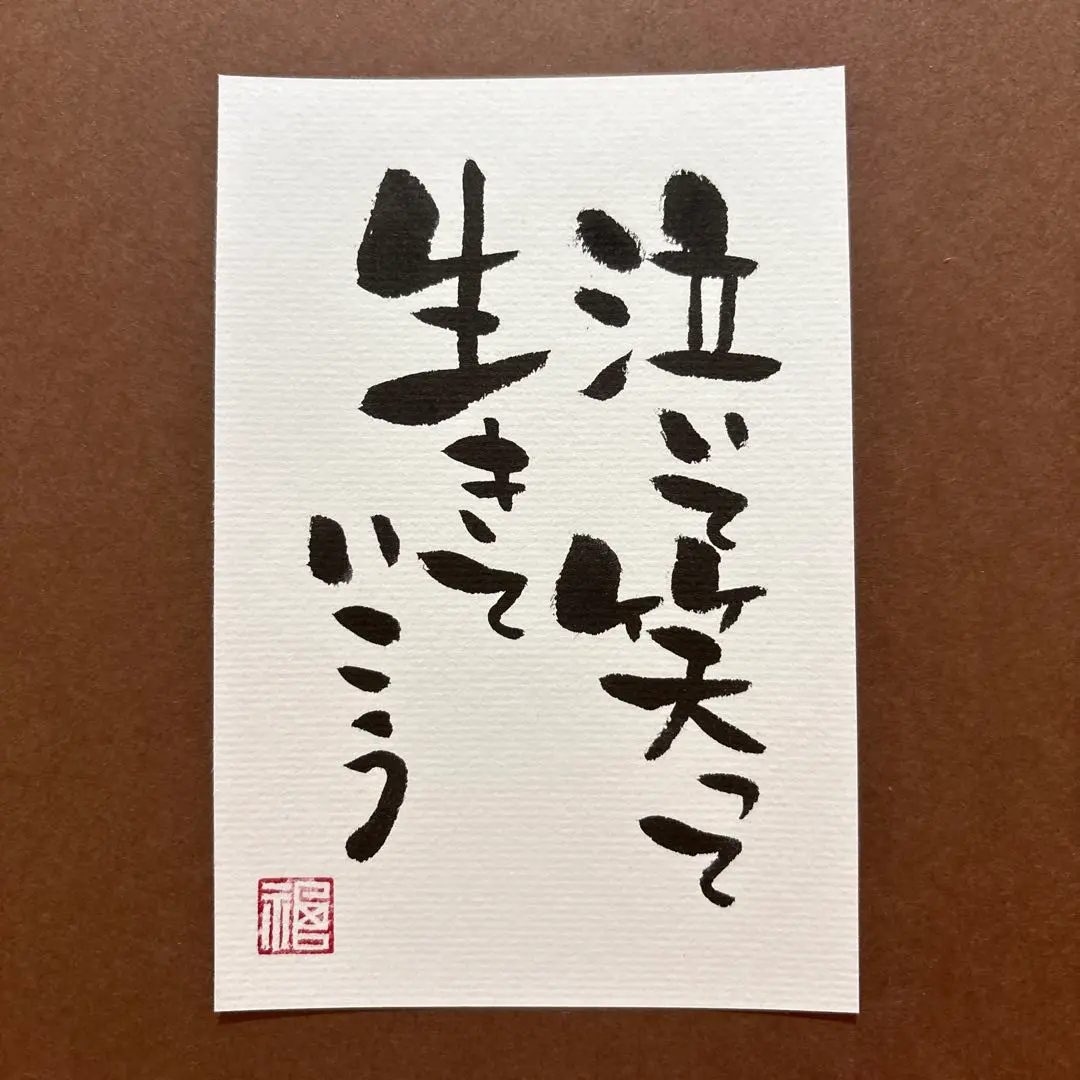 泣いて笑って
生きて
いこう